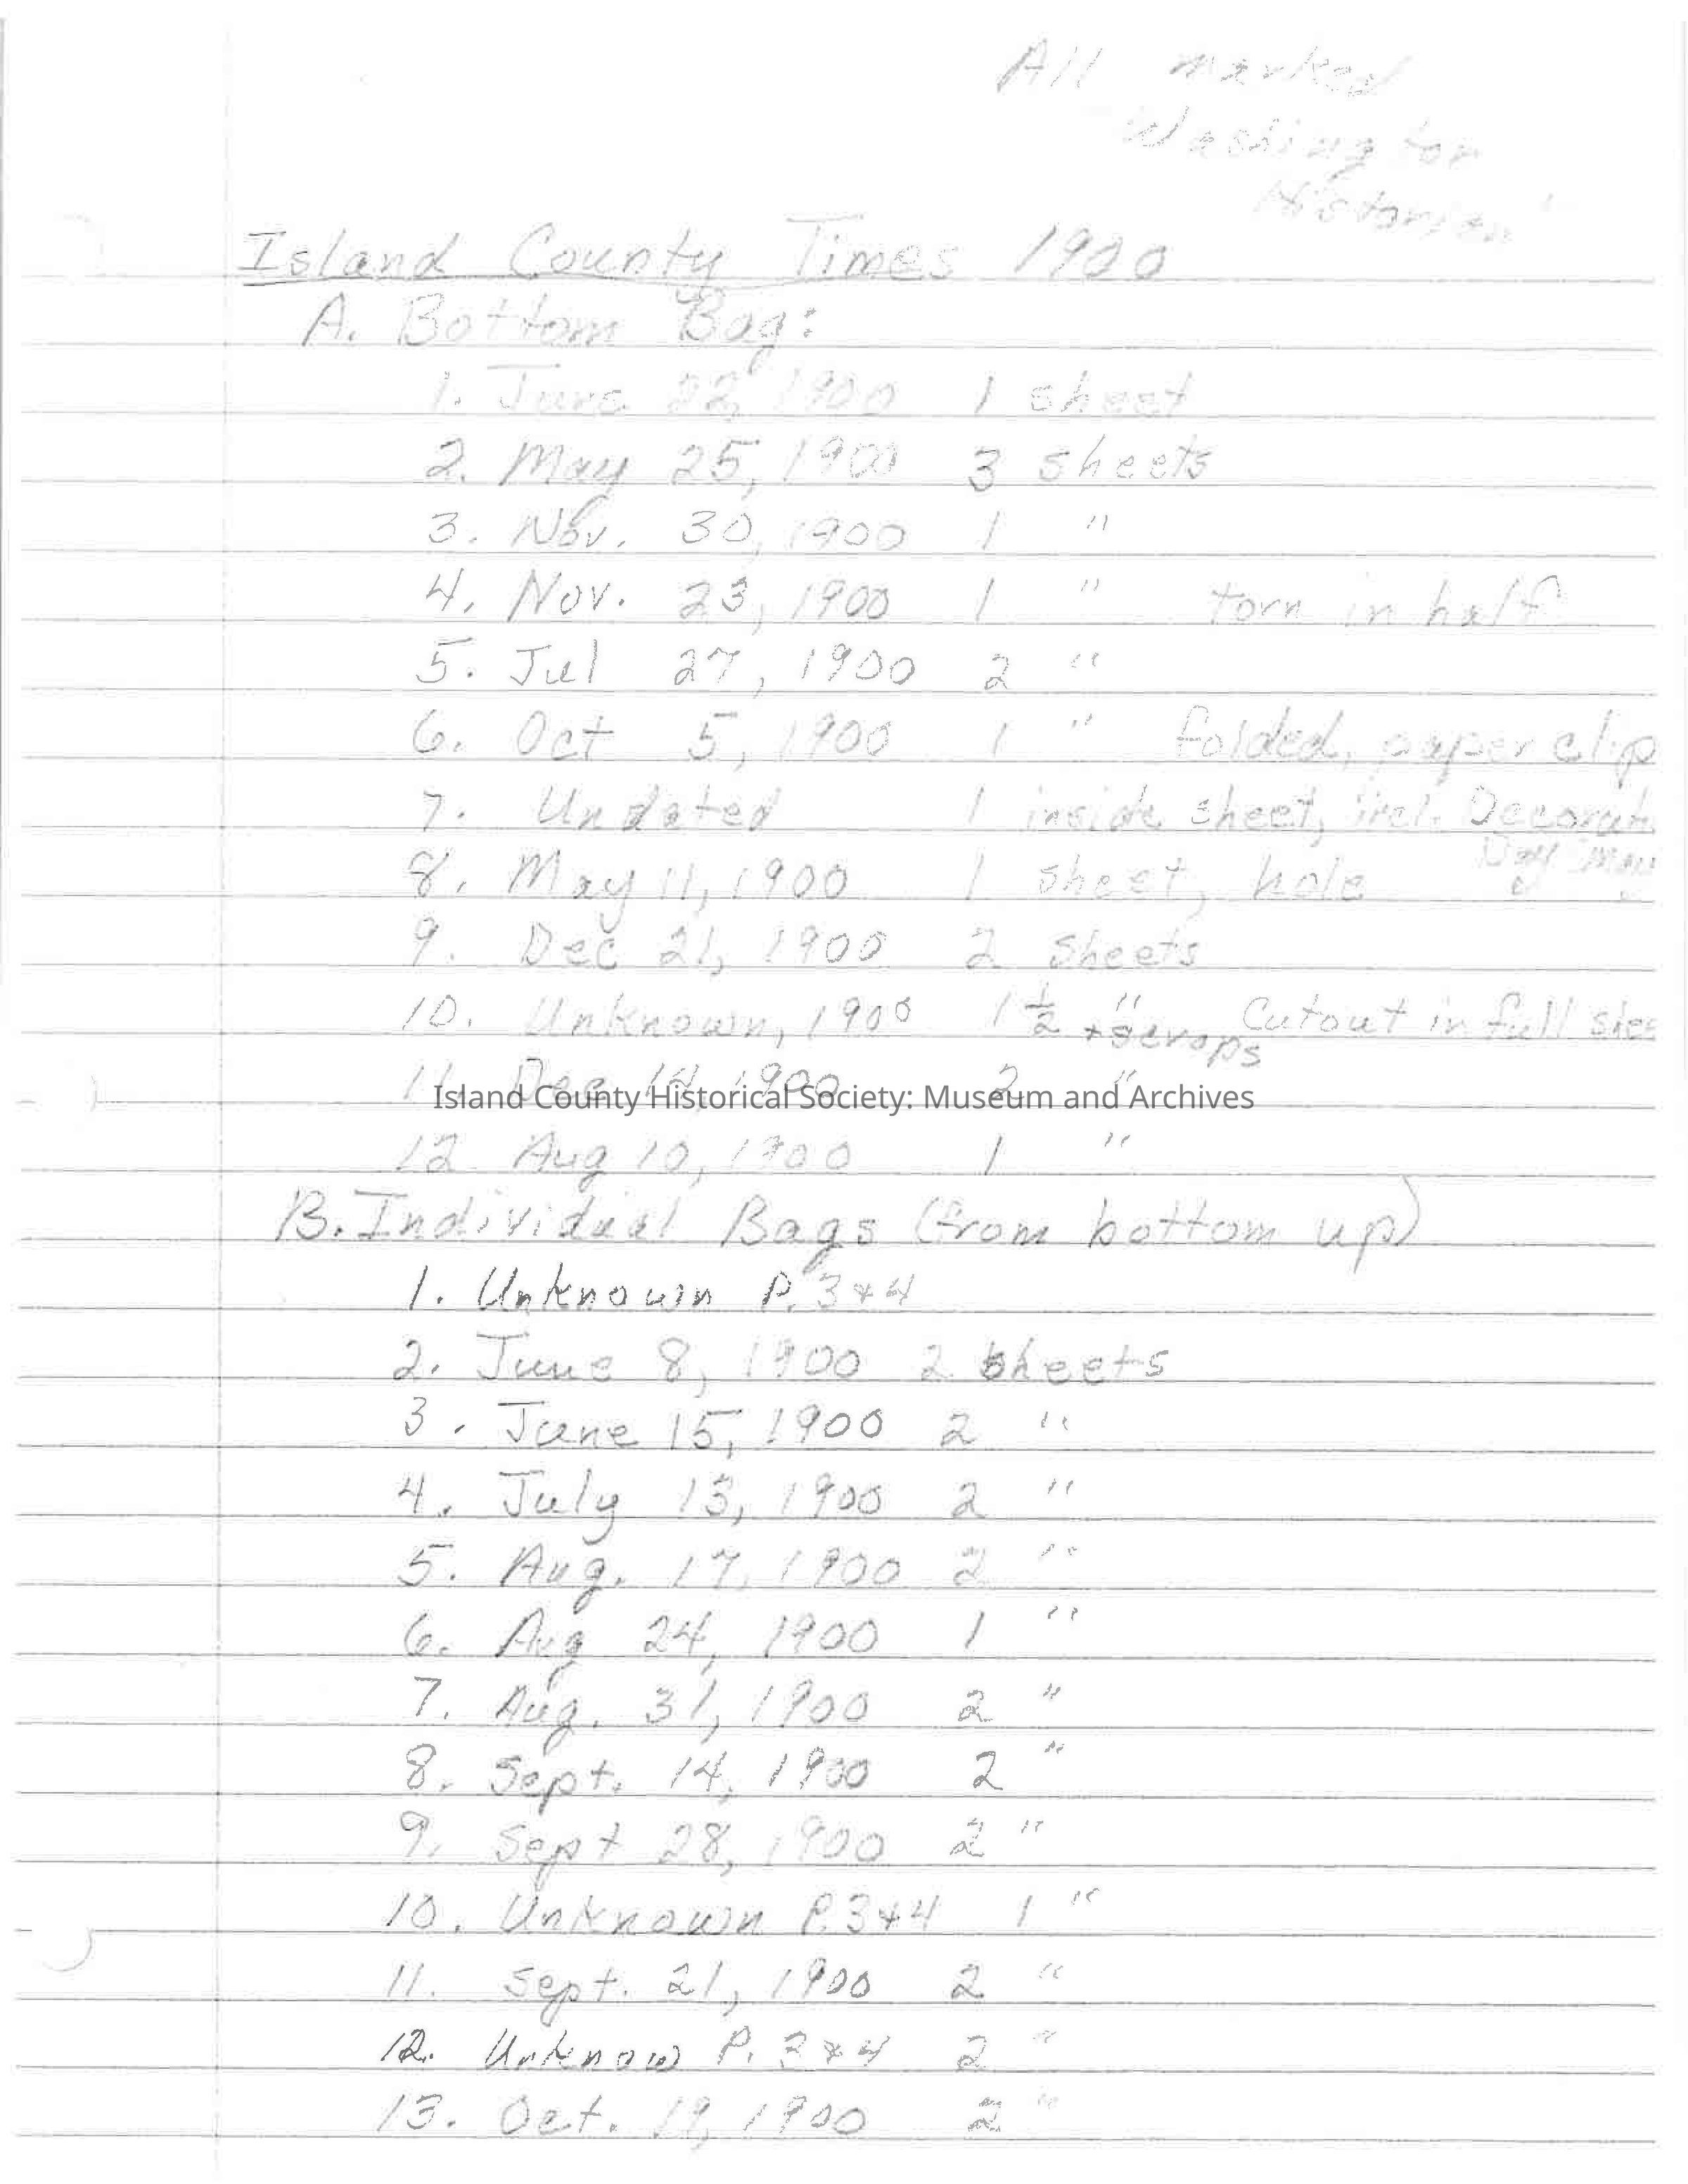 All marked
Washington
Historian"
Island County Times 1900
A. Bottom Bag:
1. June 22, 1900 1 sheet
2. May 25, 1900 3 sheets
3. Nov. 30, 1900 1 "
4. Nov. 23, 1900 1 " torn in half
5. Jul 27, 1900 2 "
6. Oct 5, 1900 1 " folded, paper clip
7. Undated 1 inside sheet, incl. Decorat
Day
8. May 11, 1900 1 sheet, hole
9. Dec 21, 1900 2 sheets
10. Unknown, 1900 1 1/2 " Cutout in full
+ scraps
11. Dec 14, 1900 2 "
Island County Historical Society: Museum and Archives
12 Aug 10, 1900 1 "
B. Individual Bags (from bottom up)
1. Unknown P. 3+4
2. June 8, 1900 2 sheets
3. June 15, 1900 2 "
4. July 13, 1900 2 "
5. Aug. 17, 1900 2 "
6. Aug 24, 1900 1 "
7. Aug. 31, 1900 2 "
8. Sept. 14, 1900 2 "
9. Sept 28, 1900 2 "
10. Unknown P.3+4 1 "
11. Sept. 21, 1900 2 "
12. Unknow P. 3+4 2 "
13. Oct. 19, 1900 2 "